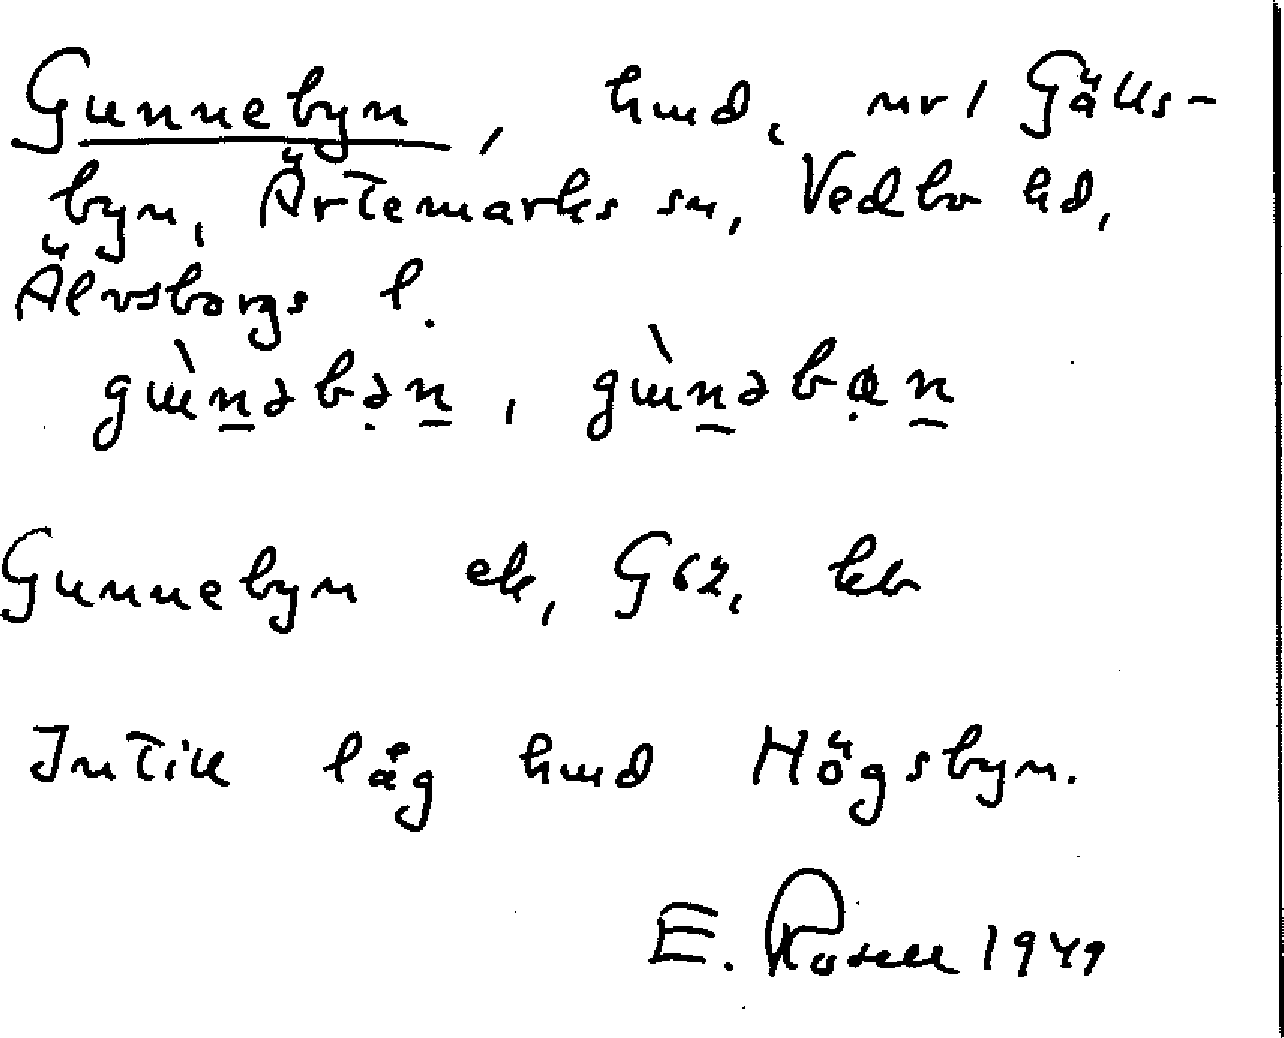 Gunnebyn, hmd, nr 1 Gälls-
byn, Ärtemarks sn, Vedbo hd,
Älvsborgs l.
gɯ̀n̲əbə̣n̲, gɯ̀n̲əbạn̲
Gunnebyn ek, G62, kb
Intill låg hmd Högsbyn.
E. Rosell 1949